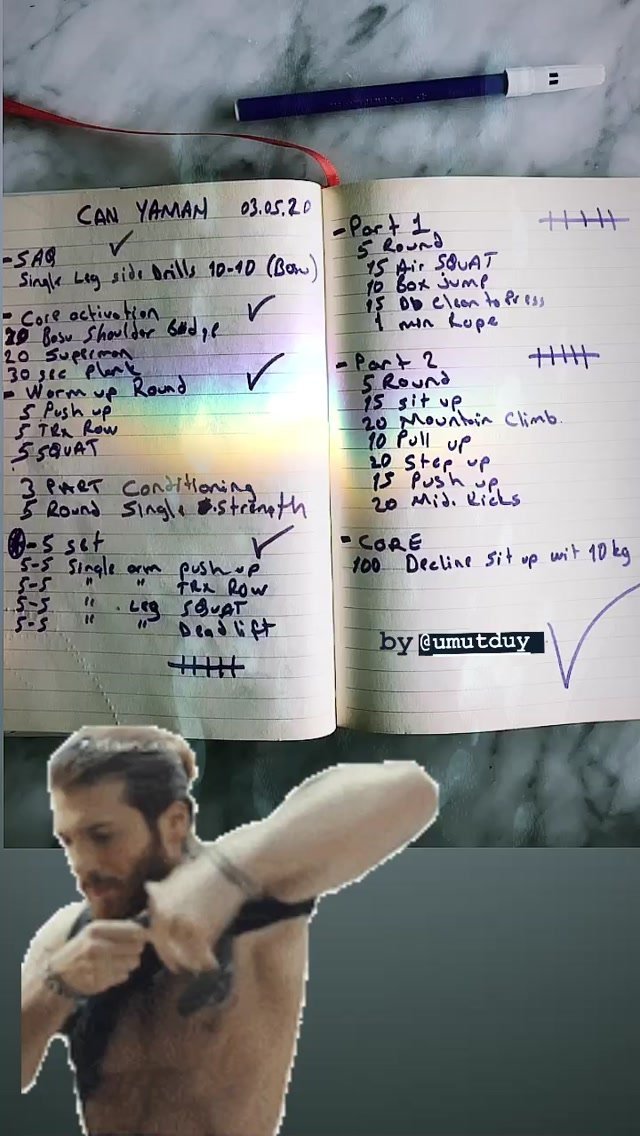 CAN YAMAN 03.05.20
- SAQ
Single Leg side Drills 10-10 (Bosu)
- Core activation
20 Bosu Shoulder
20 Superman
30 sec Plank
- Worm up Round
5 Push up
5 TRX Row
5 SQUAT
3 PART Conditioning
5 Round Single Strength
- 5 Set
5-5 Single arm push up
5-5 " " TRX ROW
5-5 " Leg SQUAT
5-5 " " Deadlift
- Part 1
5 Round
15 Air SQUAT
10 Box Jump
15 Db Clean to Press
1 min Rope
- Part 2
5 Round
15 sit up
20 Mountain Climb.
10 Pull up
20 Step up
15 Push up
20 Mid. Kicks
- CORE
100 Decline Sit up wit 10 kg
by @umutduy